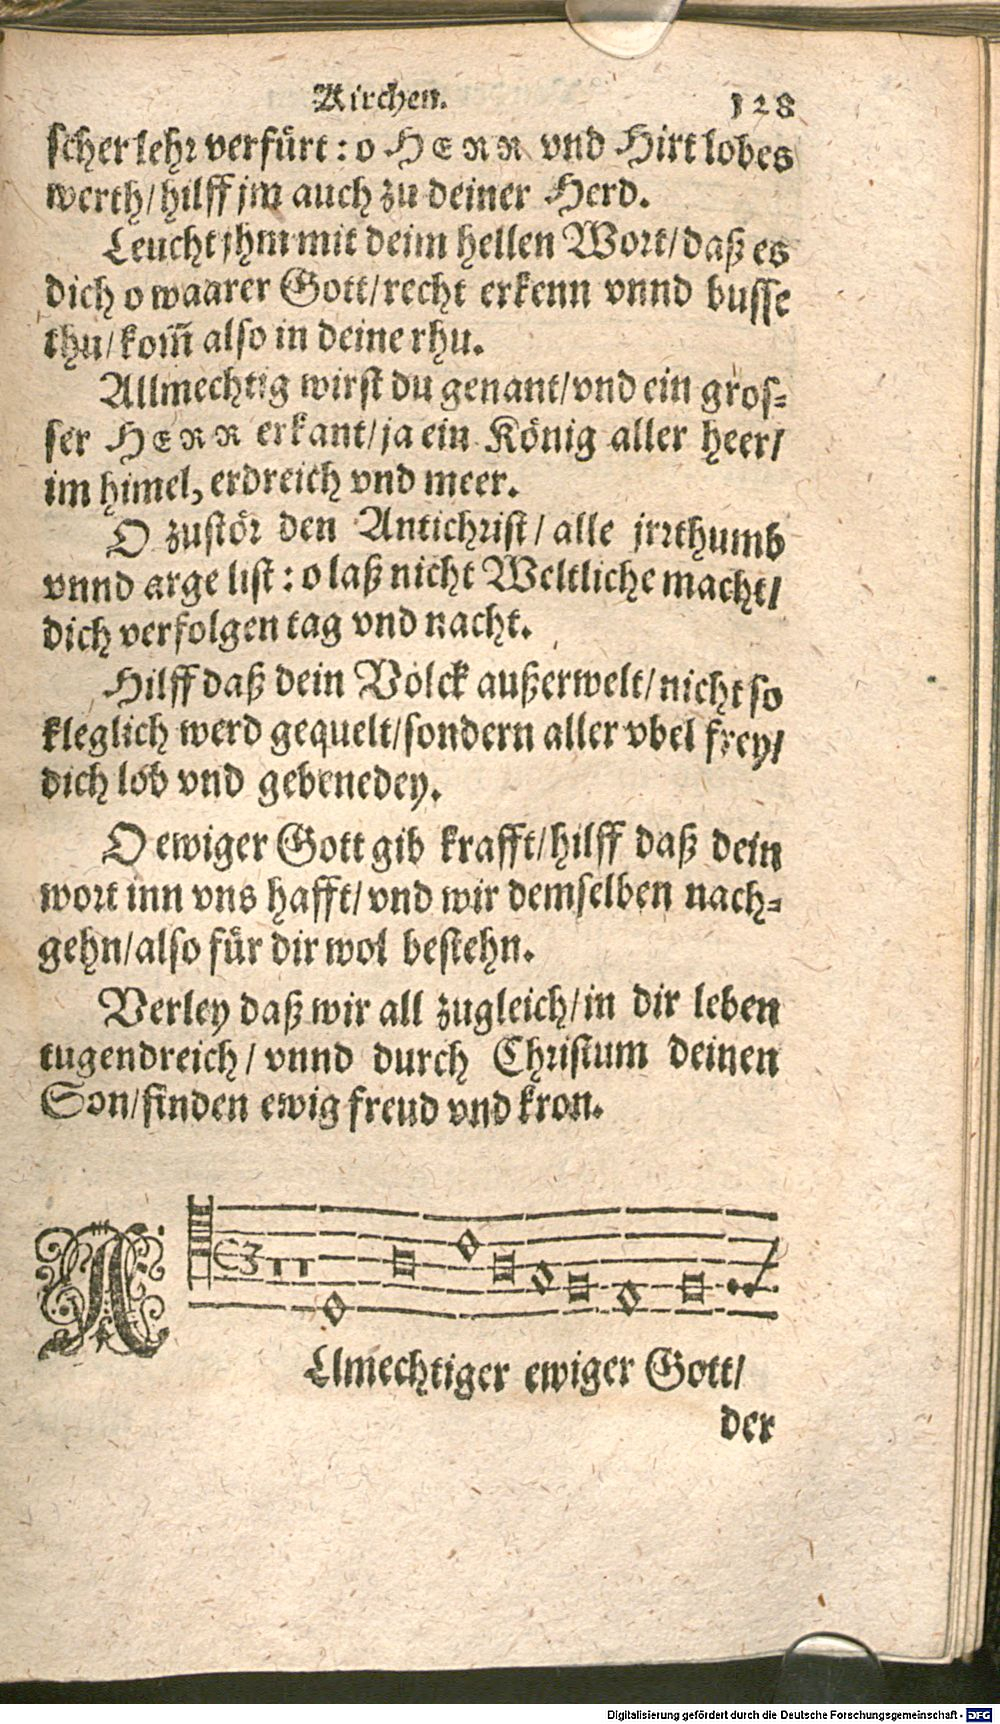 Kirchen. 128
scher lehr verfürt : o HERR vnd Hirt lobes
werth/ hilff jm auch zu deiner Herd.
Leucht jhm mit deim hellen Wort/ daß es
dich o waarer Gott/ recht erkenn vnnd busse
thu/ kom̃ also in deine rhu.
Allmechtig wirst du genant/ vnd ein gros-
ser HERR erkant/ ja ein König aller heer/
im himel, erdreich vnd meer.
O zustör den Antichrist/ alle jrrthumb
vnnd arge list : o laß nicht Weltliche macht/
dich verfolgen tag vnd nacht.
Hilff daß dein Volck außerwelt/ nicht so
kleglich werd gequelt/ sondern aller vbel frey/
dich lob vnd gebenedey.
O ewiger Gott gib krafft/ hilff daß dein
wort inn vns hafft/ vnd wir demselben nach-
gehn/ also für dir wol bestehn.
Verley daß wir all zugleich/ in dir leben
tugendreich/ vnnd durch Christum deinen
Son/ finden ewig freud vnd kron.
ALlmechtiger ewiger Gott/
der
Digitalisierung gefördert durch die Deutsche Forschungsgemeinschaft - DFG